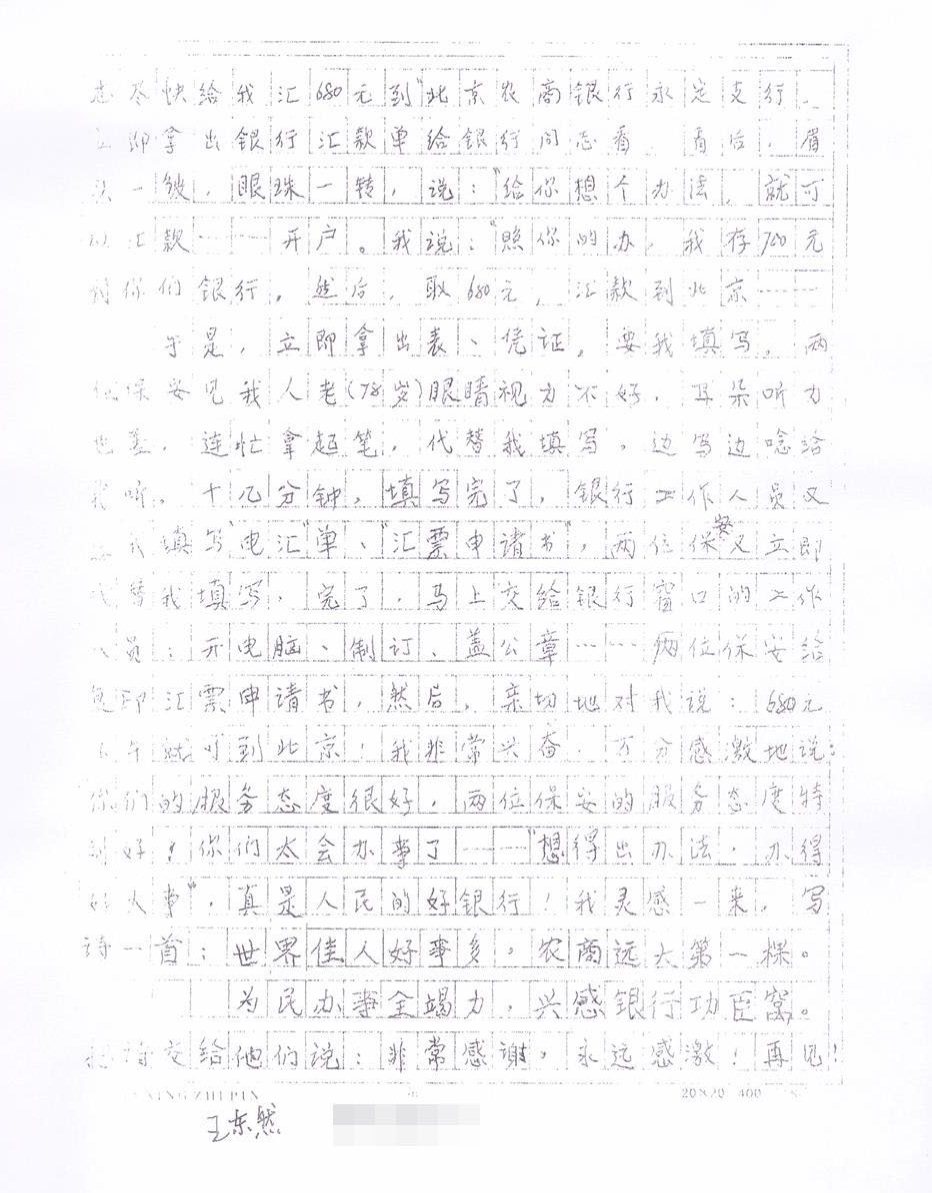 尽快给我汇680元到"北京农商银行永定支行。
立即拿出银行汇款单给银行同志看。看后，眉
头一皱，眼珠一转，说："给你想个办法，就可
以汇款……开户。我说："照你的办，我存700元
到你们银行。然后，取680元，汇款到北京……
于是，立即拿出表、凭证。要我填写。两
位保安见我人老(78岁)眼睛视力不好，耳朵听力
也差，连忙拿起笔，代替我填写。边写边唸给
我听。十几分钟，填写完了，银行工作人员又
我填写"电汇"单、"汇票申请书"，两位保安又立即
代替我填写，完了，马上交给银行窗口的工作
人员：开电脑、制订、盖公章……两位保安给
复印汇票申请书，然后，亲切地对我说：680元
下午就可到北京！我非常兴奋，万分感激地说：
你们的服务态度很好，两位保安的服务态度特
别好！你们太会办事了……"想得出办法，办得
好大事"，真是人民的好银行！我灵感一来，写
诗一首：世界佳人好事多。农商远大第一棵。
为民办事全竭力，兴感银行功臣窝。
把诗交给他们说：非常感谢，永远感激！再见！
XINGZHIPIN 20×20=400
王东然